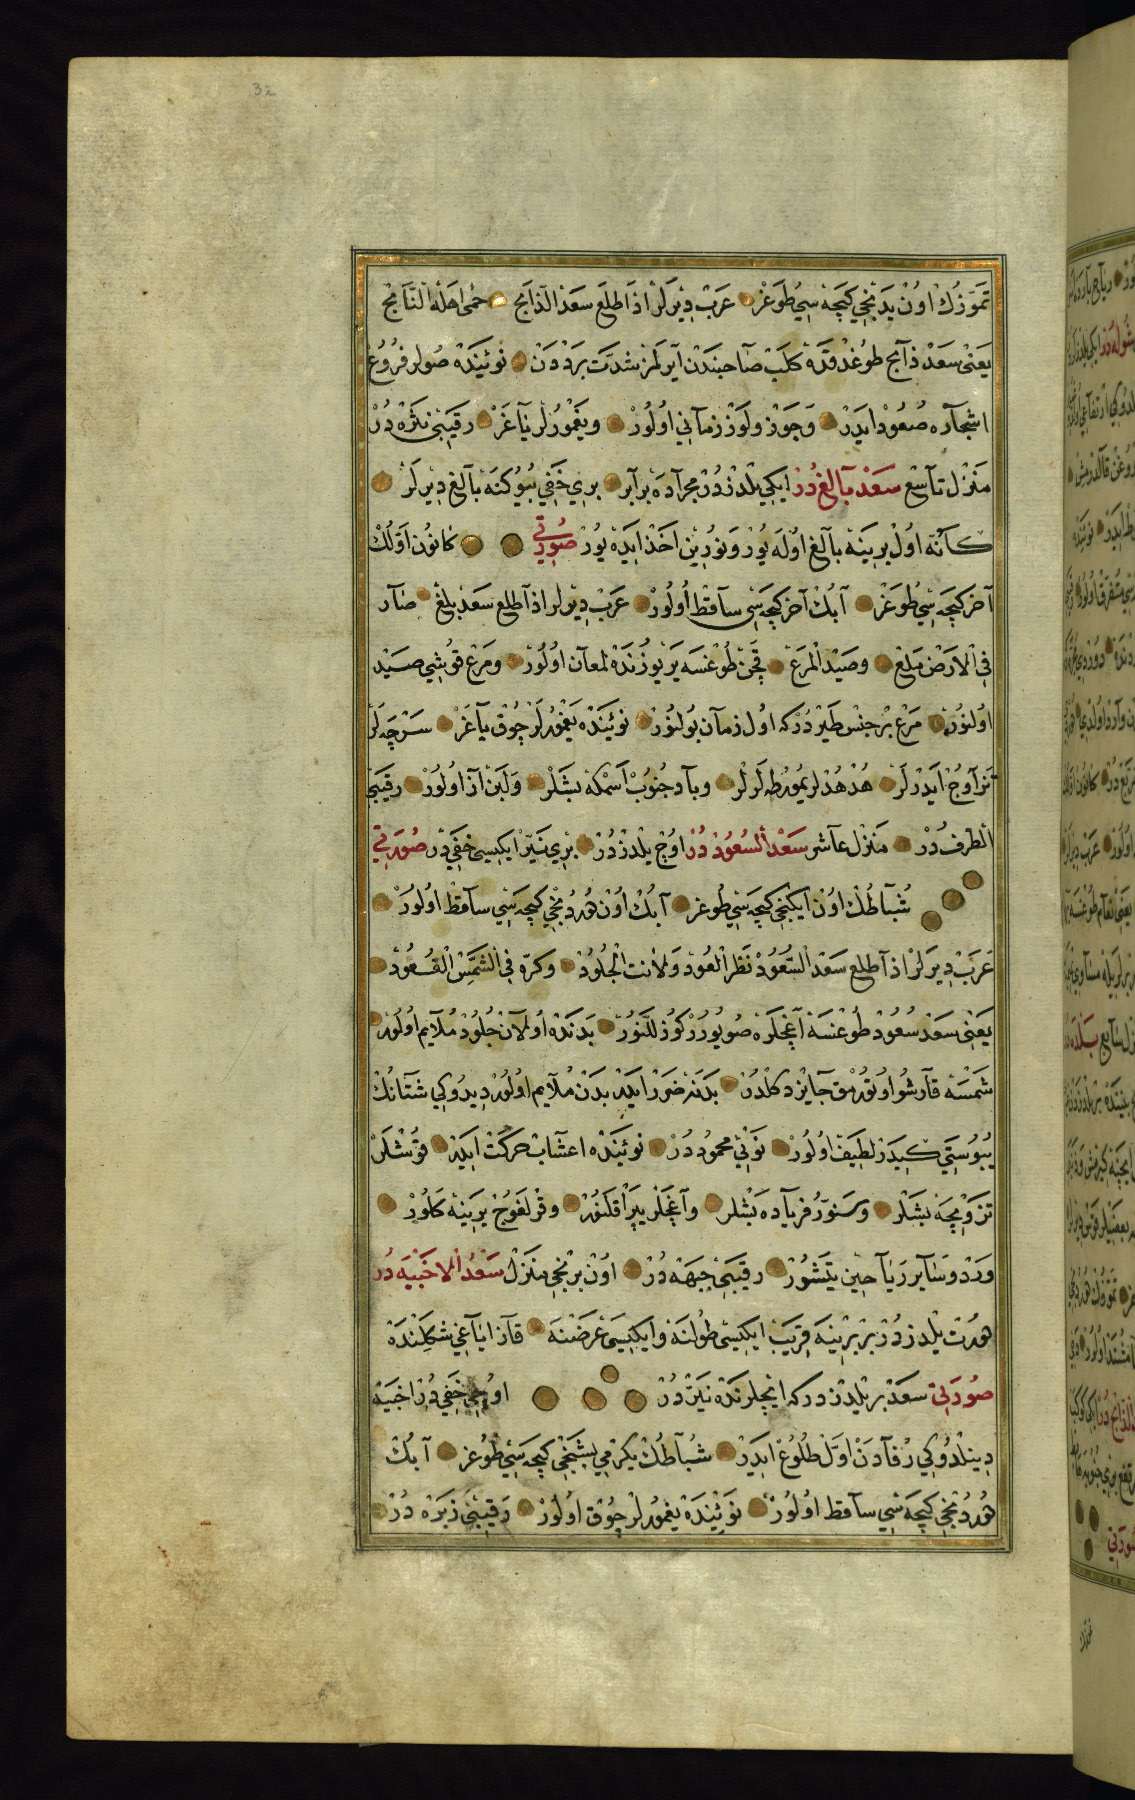 32
تموزك اون يدنجي كيجه سي طوغر عرب ديرلر اذا طلع سعد الذابح حمى اهله النابح
يعنى سعد ذابح طوغدقده كلب صاحبندن آيرلمز شدت بردن نوئينده صولر فروع
اشجاره صعود ايدر وجوز ولوز زماني اولور ويغمورلر ياغر رقيبى نثره در
منزل تاسع سعد بالغ در ايكي يلدزدر مجراده برابر بري خفي بيوكنه بالغ ديرلر
كانه اول بريينه بالغ اوله يور ونوريني اخذ ايده يور صورتي كانون اولك
آخر كيجه سي طوغر آبك آخر كيجه سى ساقط اولور عرب ديرلر اذا طلع سعد بلغ صار
في الارض مبلغ وصيد المرع قچن طوغسه ير يوزنده لمعان اولور ومرع قوشي صيد
اولنور مرع بر جنس طيردر كه اول زمان بولنور نوئينده يغمورلر چوق ياغر سرچه لر
تزاوج ايدرلر هدهدلر يمورطه لرلر وباد جنوب اسمكه بشلر ولبن از اولور رقيبى
الطرف در منزل عاشر سعد السعود در اوچ يلدزدر بري نير ايكيسى خفي در صورتي
شباطك اون ايكنجي كيجه سي طوغر آبك اون دردنجي كيجه سي ساقط اولور
عرب ديرلر اذا طلع سعد السعود نظر العود ولانت الجلود وكره في الشمس القعود
يعنى سعد سعود طوغسه آغجلره صو يورر كوزلنور بدنده اولان جلود ملايم اولور
شمسه قارشو اوتورمق جايز دكلدر بدنه ضرر ايدر بدن ملايم اولور ديدوكي شتانك
يبوستي كيدر لطيف اولور نوئي محموددر نوئينده اعشاب حركت ايدر قوشلر
تزوجه بشلر وسنور فرياده بشلر وآغجلر يپراقلنور وقرلغوج يريينه كلور
ورد وساير رياحين يتشور رقيبى جبهه در اون برنجي منزل سعد الاخبيه در
درت يلدزدر بر بريينه قريب ايكيسى طولنه وايكيسى عرضنه قاز اياغي شكلنده
صورتي سعد بر يلدزدر كه ايچلرنده نيردر اوچي خفي در اخبيه
دينلدوكي رفادن اول طلوع ايدر شباطك يكرمي بشنجي كيجه سي طوغر آبك
دردنجي كيجه سي ساقط اولور نوئينده يغمورلر چوق اولور رقيبى زبره در